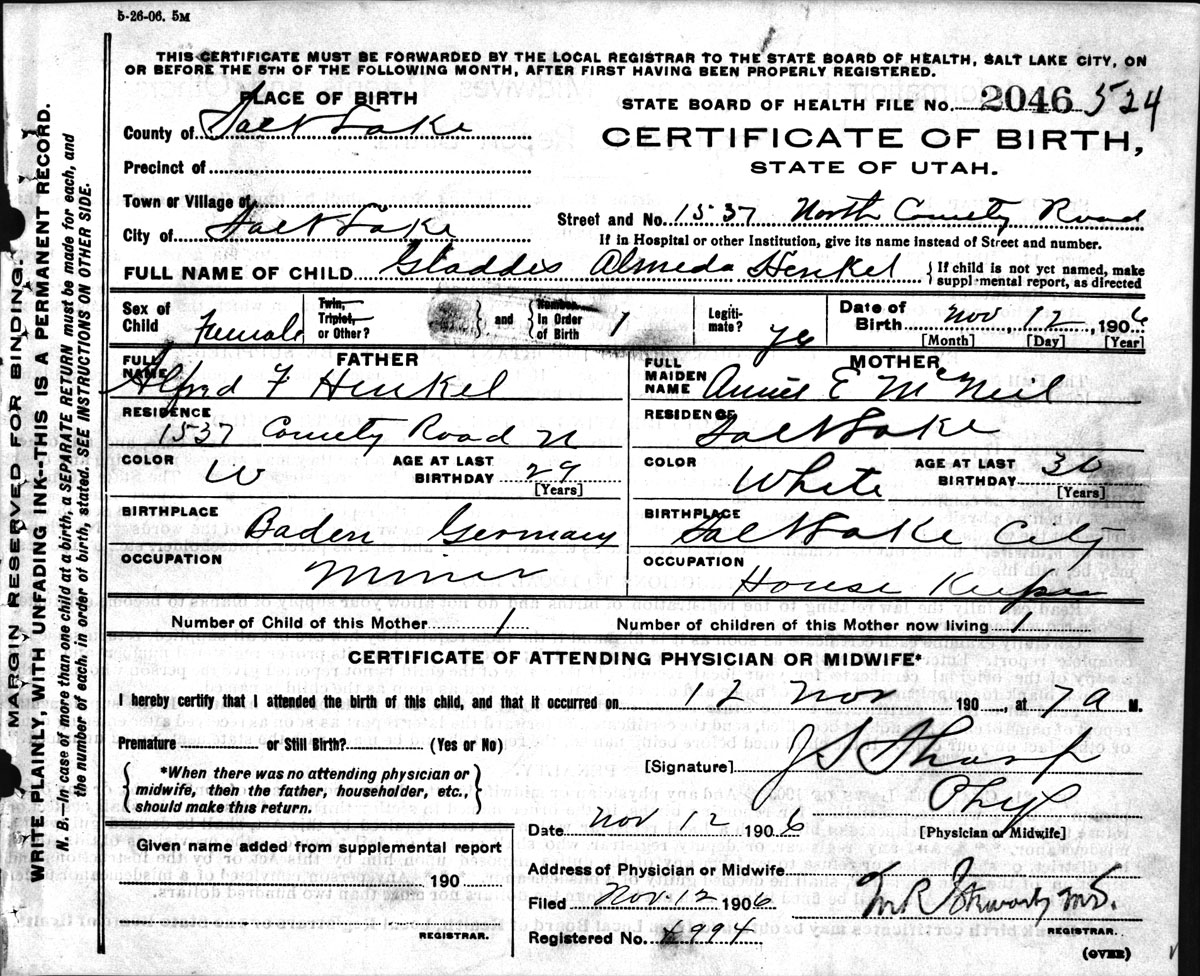 5-26-06. 5M
THIS CERTIFICATE MUST BE FORWARDED BY THE LOCAL REGISTRAR TO THE STATE BOARD OF HEALTH, SALT LAKE CITY, ON
OR BEFORE THE 5TH OF THE FOLLOWING MONTH, AFTER FIRST HAVING BEEN PROPERLY REGISTERED.
PLACE OF BIRTH
STATE BOARD OF HEALTH FILE No. 2046 524
County of Salt Lake
CERTIFICATE OF BIRTH,
Precinct of
STATE OF UTAH.
Town or Village of
Street and No. 1537 North County Road
City of Salt Lake
If in Hospital or other Institution, give its name instead of Street and number.
FULL NAME OF CHILD Gladdis Almeda Henkel { If child is not yet named, make
supplemental report, as directed
Sex of Child Female
Twin, Triplet, or Other?
} and {
Number in Order of Birth 1
Legiti-mate? yes
Date of Birth Nov 12, 1906
[Month] [Day] [Year]
FATHER
FULL NAME Alfred F Henkel
MOTHER
FULL MAIDEN NAME Annie E McNeil
RESIDENCE 1537 County Road N
RESIDENCE Salt Lake
COLOR W AGE AT LAST BIRTHDAY 29 [Years]
COLOR White AGE AT LAST BIRTHDAY 30 [Years]
BIRTHPLACE Baden Germany
BIRTHPLACE Salt Lake City
OCCUPATION Miner
OCCUPATION House Keeper
Number of Child of this Mother 1 Number of children of this Mother now living 1
CERTIFICATE OF ATTENDING PHYSICIAN OR MIDWIFE*
I hereby certify that I attended the birth of this child, and that it occurred on 12 Nov 190 , at 7 a M.
Premature or Still Birth? (Yes or No)
[Signature] J S Sharp
{ *When there was no attending physician or
midwife, then the father, householder, etc.,
should make this return. }
Phys
Date Nov 12 1906 [Physician or Midwife]
Given name added from supplemental report
Address of Physician or Midwife
190
Filed Nov. 12 1906
M.D.
REGISTRAR.
Registered No. 4994
REGISTRAR.
(OVER)
MARGIN RESERVED FOR BINDING.
WRITE PLAINLY, WITH UNFADING INK--THIS IS A PERMANENT RECORD.
N. B.--In case of more than one child at a birth, a SEPARATE RETURN must be made for each, and
the number of each, in order of birth, stated. SEE INSTRUCTIONS ON OTHER SIDE.